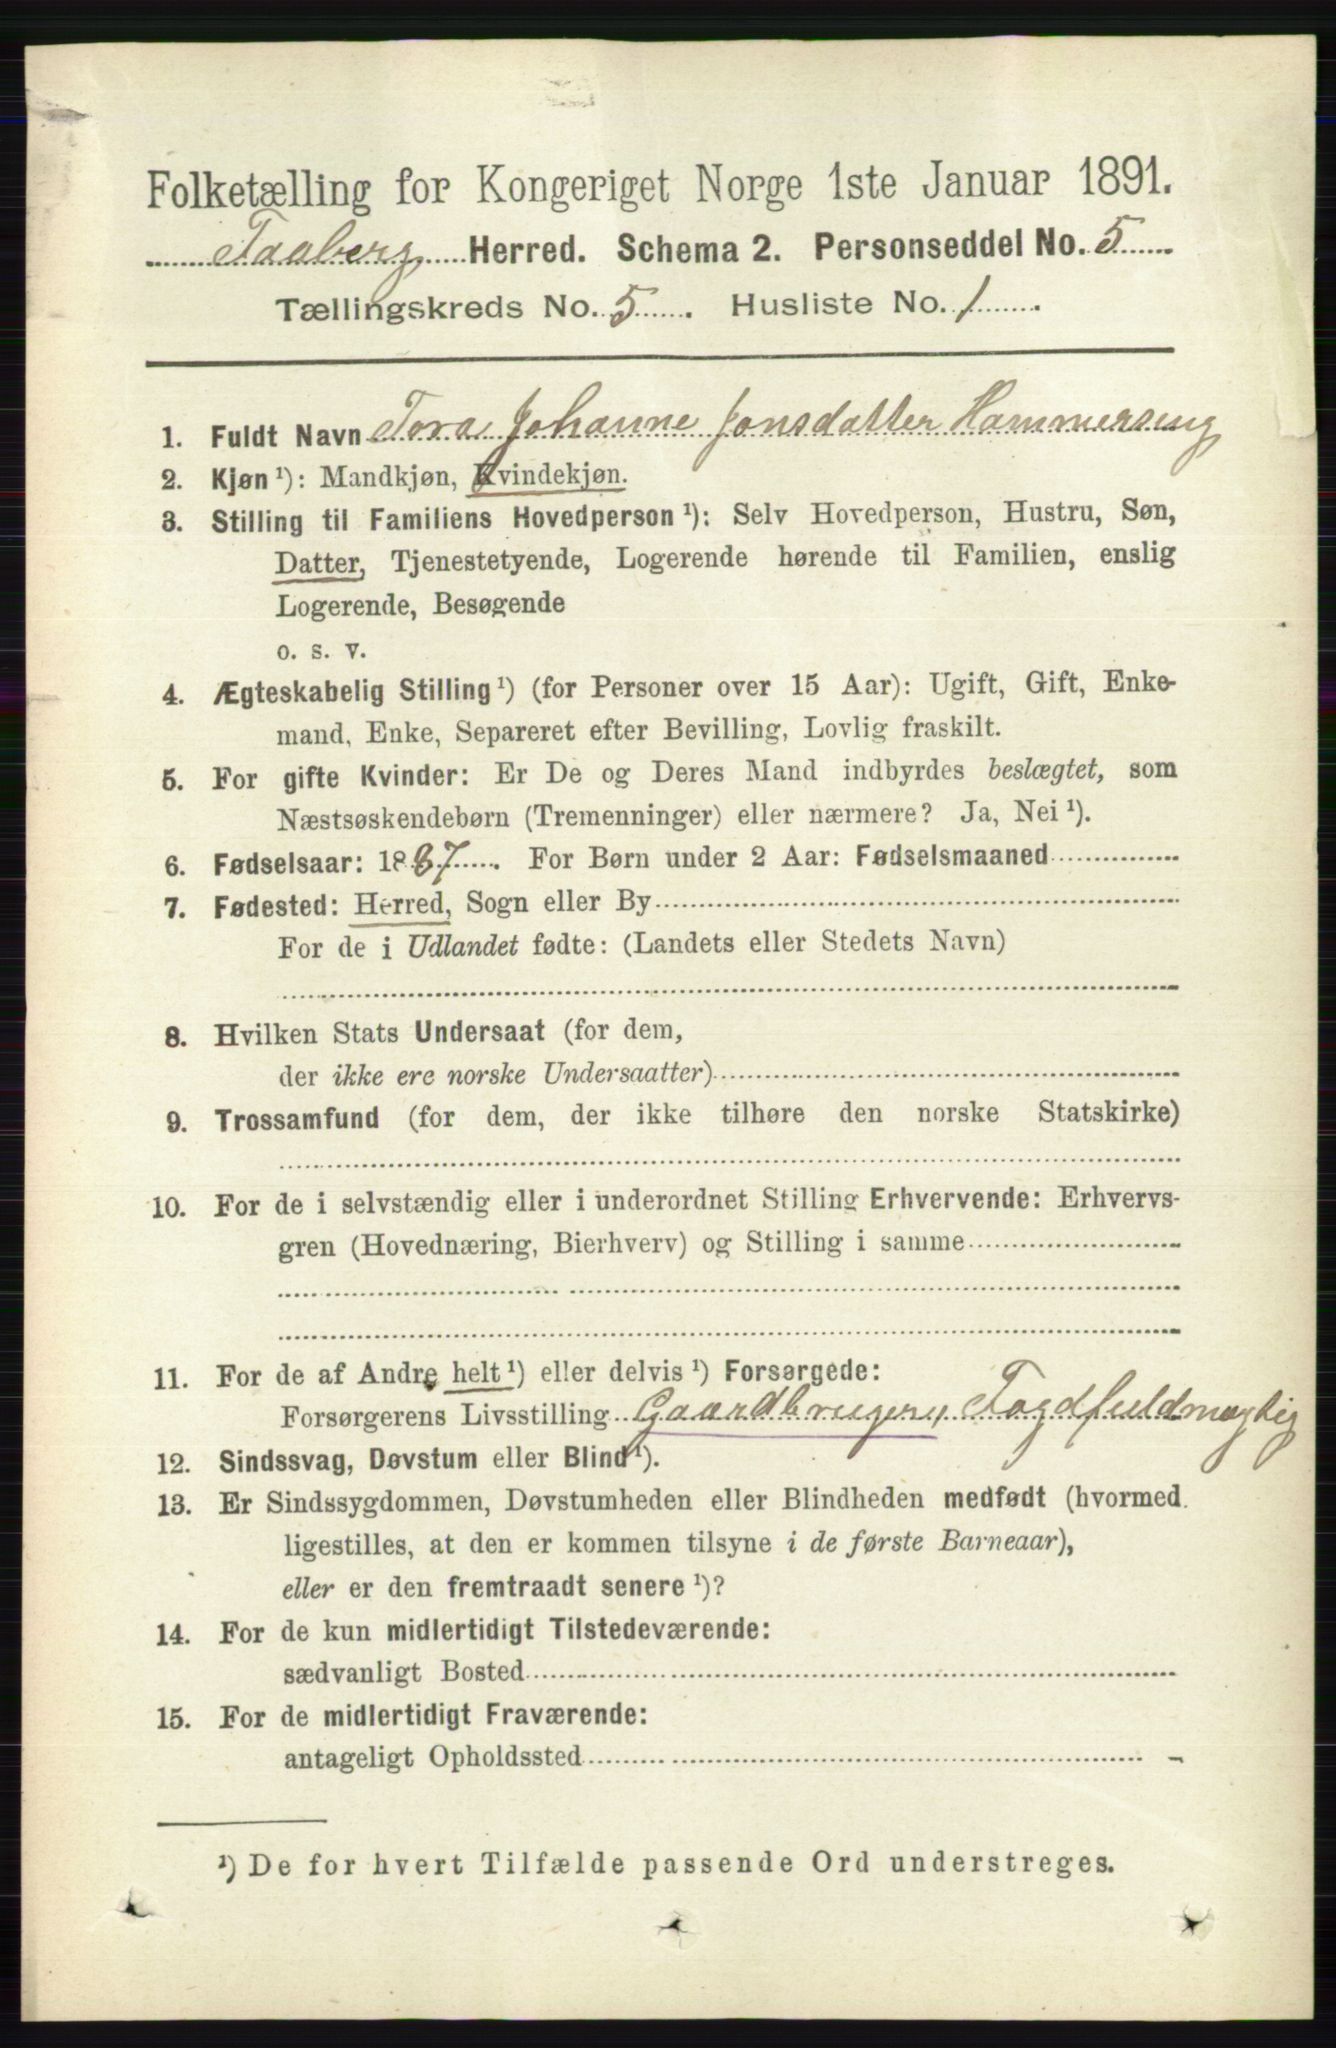 Folketælling for Kongeriget Norge 1ste Januar 1891.
Faaberg Herred. Schema 2. Personseddel No. 5
Tællingskreds No. 5. Husliste No. 1
1. Fuldt Navn Tora Johanne Jonsdatter Hammerseng
2. Kjøn¹): Mandkjøn, Kvindekjøn.
3. Stilling til Familiens Hovedperson¹): Selv Hovedperson, Hustru, Søn,
Datter, Tjenestetyende, Logerende hørende til Familien, enslig
Logerende, Besøgende
o. s. v.
4. Ægteskabelig Stilling¹) (for Personer over 15 Aar): Ugift, Gift, Enke-
mand, Enke, Separeret efter Bevilling, Lovlig fraskilt.
5. For gifte Kvinder: Er De og Deres Mand indbyrdes beslægtet, som
Næstsøskendebørn (Tremenninger) eller nærmere? Ja, Nei¹).
6. Fødselsaar: 1887. For Børn under 2 Aar: Fødselsmaaned
7. Fødested: Herred, Sogn eller By
For de i Udlandet fødte: (Landets eller Stedets Navn)
8. Hvilken Stats Undersaat (for dem,
der ikke ere norske Undersaatter)
9. Trossamfund (for dem, der ikke tilhøre den norske Statskirke)
10. For de i selvstændig eller i underordnet Stilling Erhvervende: Erhvervs-
gren (Hovednæring, Bierhverv) og Stilling i samme
11. For de af Andre helt¹) eller delvis¹) Forsørgede:
Forsørgerens Livsstilling Gaardbruger, Fogdfuldmægtig
12. Sindssvag, Døvstum eller Blind¹).
13. Er Sindssygdommen, Døvstumheden eller Blindheden medfødt (hvormed
ligestilles, at den er kommen tilsyne i de første Barneaar),
eller er den fremtraadt senere¹)?
14. For de kun midlertidigt Tilstedeværende:
sædvanligt Bosted
15. For de midlertidigt Fraværende:
antageligt Opholdssted
¹) De for hvert Tilfælde passende Ord understreges.